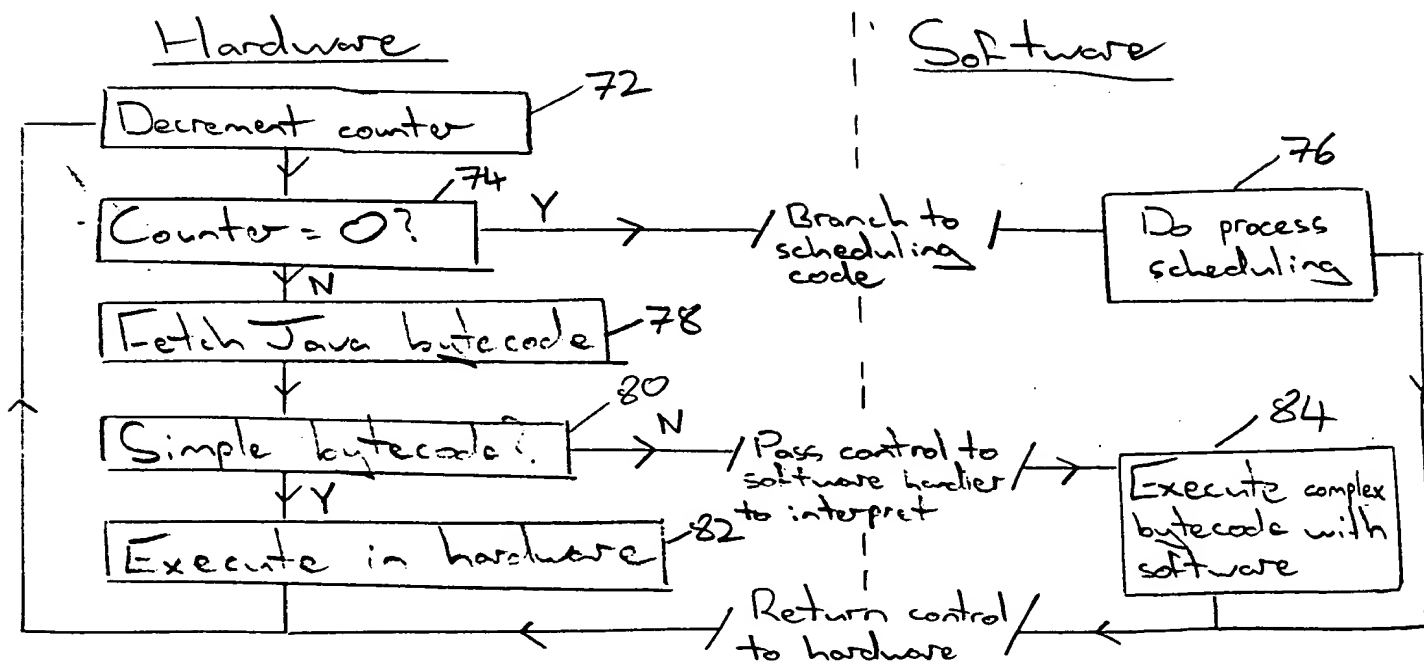 Hardware
Software
Decrement counter
72
Counter = 0?
74
Y
Branch to
scheduling
code
76
Do process
scheduling
N
Fetch Java bytecode
78
Simple bytecode?
80
N
Pass control to
software handler
to interpret
84
Execute complex
bytecode with
software
Y
Execute in hardware
82
Return control
to hardware